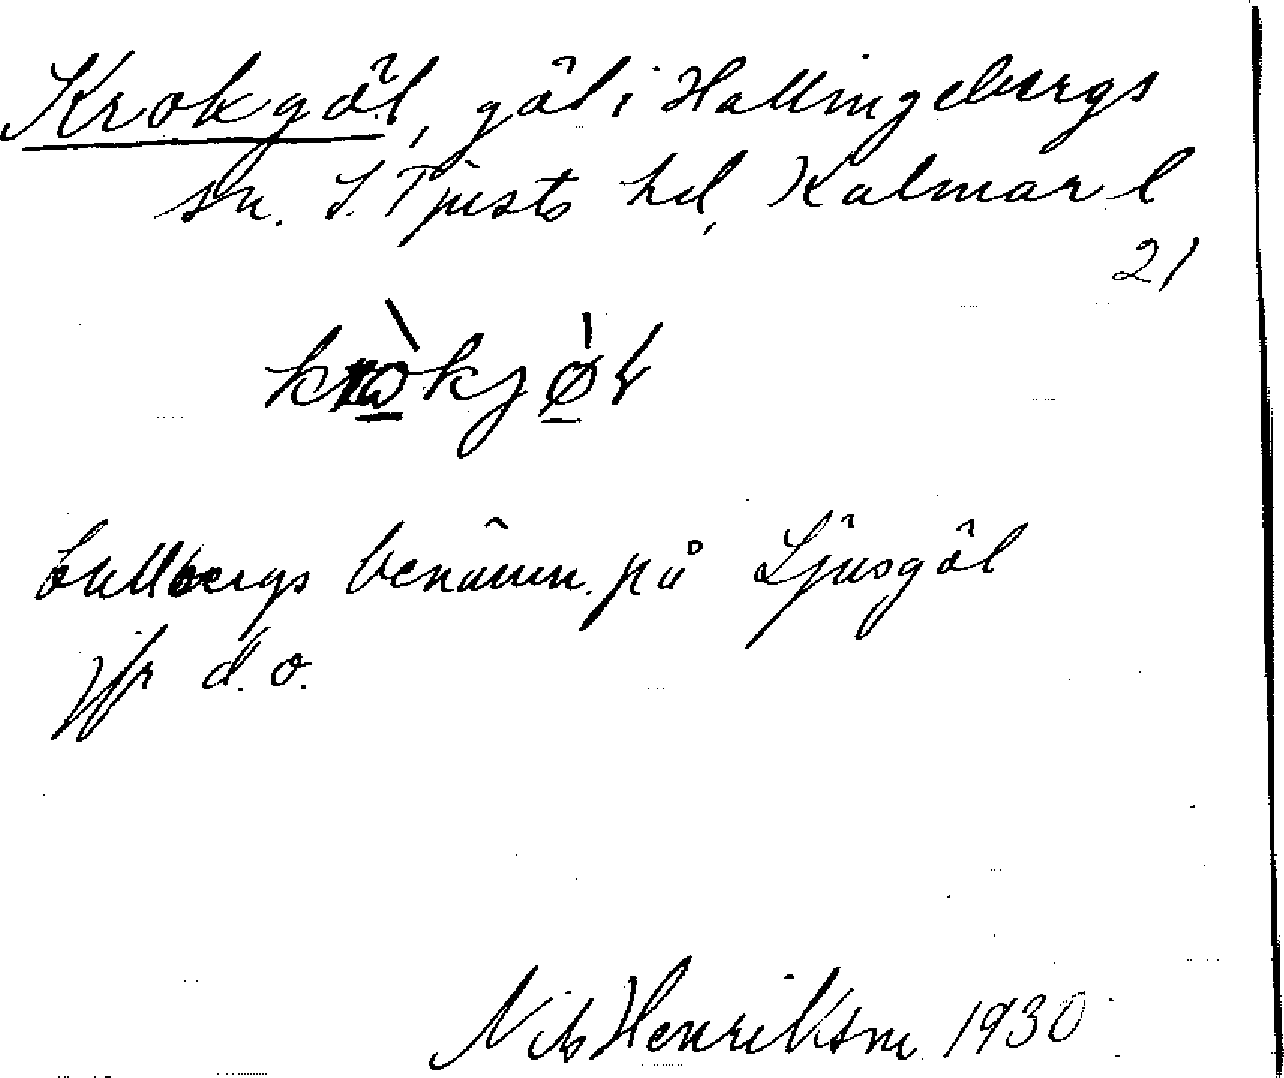 Krokgöl, göl i Hallingebergs
sn. S. Tjusts hd, Kalmar l
21
kròkjøl
bergs benämn. på Ljusgöl
jfr d. o.
Nils Henriksm 1930